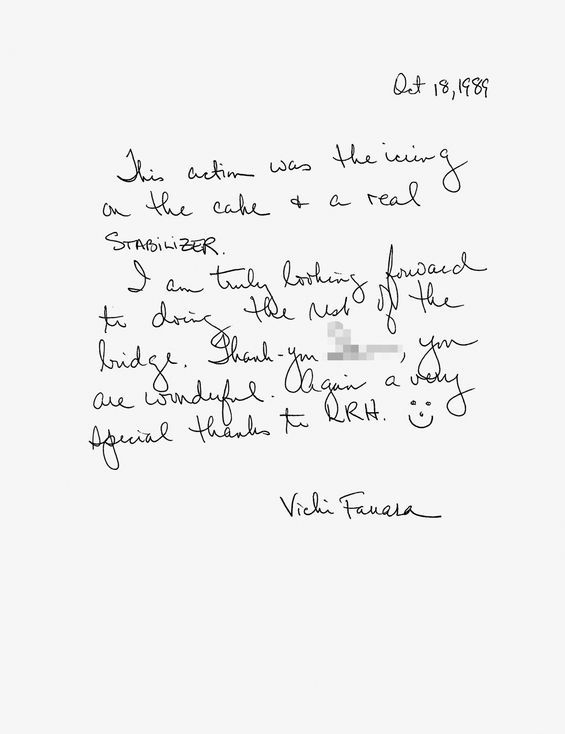 Oct 18, 1989
This action was the icing
on the cake & a real
STABILIZER.
I am truly looking forward
to doing the rest of the
bridge. Thank-you , you
are wonderful. Again a very
special thanks to RRH.
Vicki